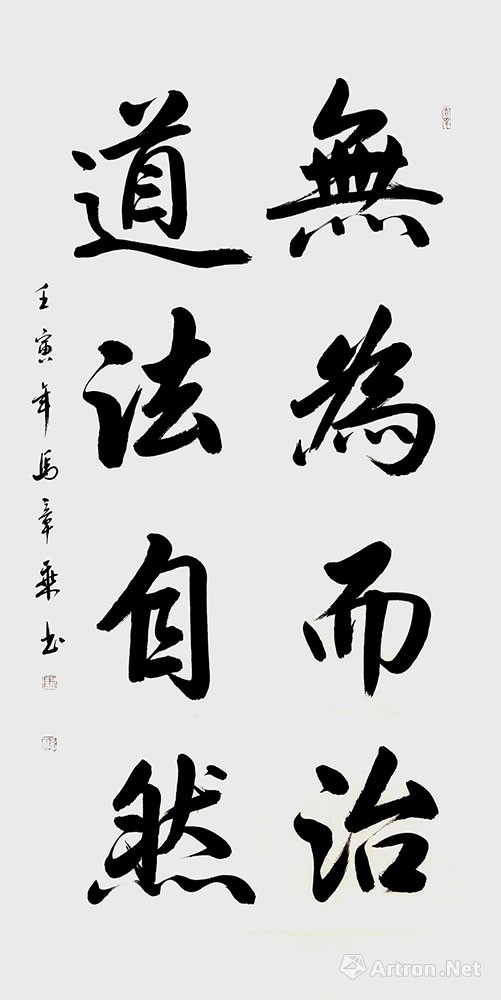 無為而治
道法自然
壬寅年馬章乘书
Artron.Net